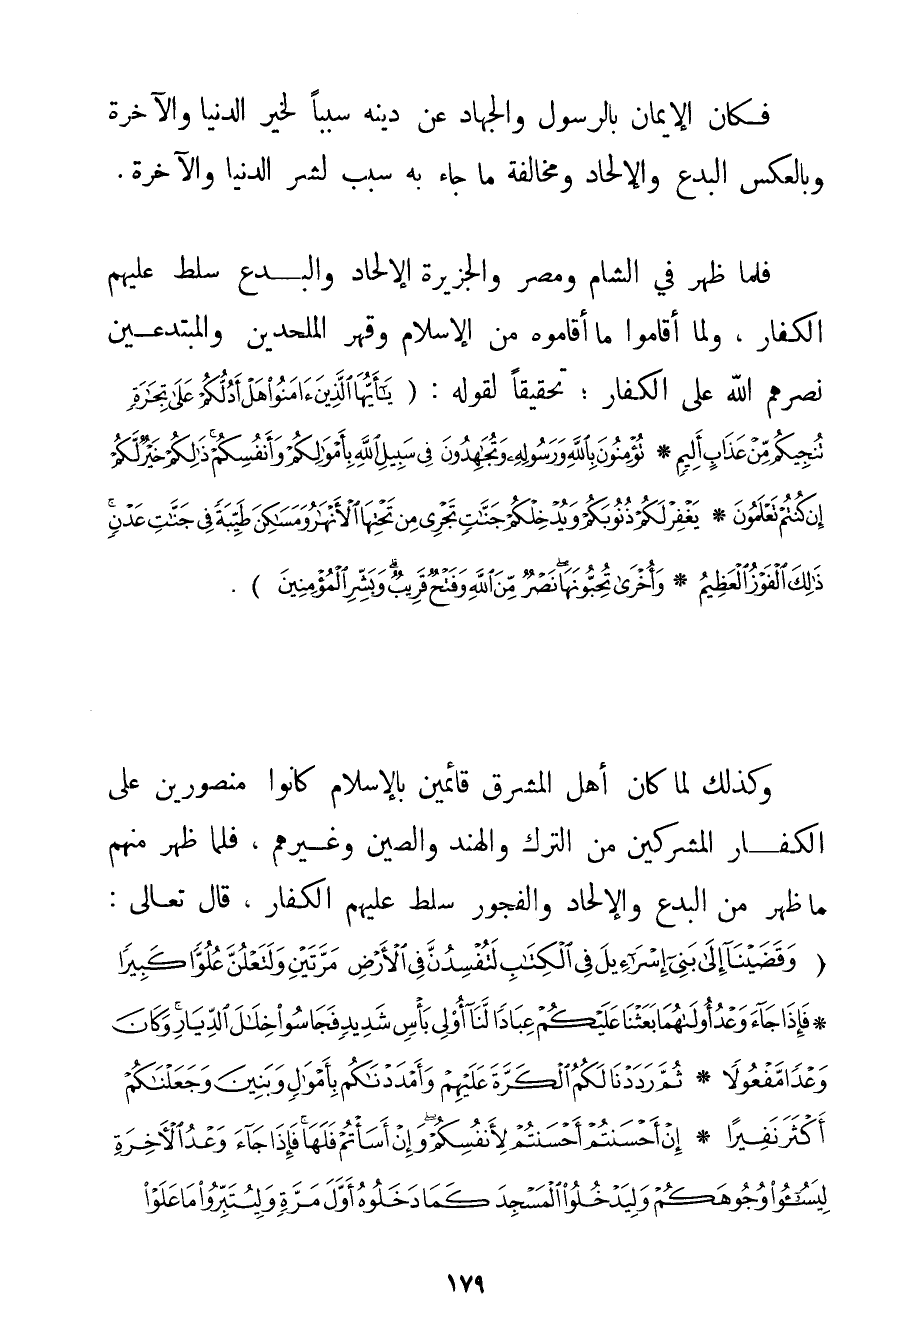 فكان الإيمان بالرسول والجهاد عن دينه سبباً لخير الدنيا والآخرة
وبالعكس البدع والإلحاد ومخالفة ما جاء به سبب لشر الدنيا والآخرة .
فلما ظهر في الشام ومصر والجزيرة الإلحاد والبدع سلط عليهم
الكفار ، ولما أقاموا ما أقاموه من الإسلام وقهر الملحدين والمبتدعين
نصرهم الله على الكفار ؛ تحقيقاً لقوله : ( يَـٰٓأَيُّهَا ٱلَّذِينَ ءَامَنُوا۟ هَلْ أَدُلُّكُمْ عَلَىٰ تِجَـٰرَةٍ
تُنجِيكُم مِّنْ عَذَابٍ أَلِيمٍ * تُؤْمِنُونَ بِٱللَّهِ وَرَسُولِهِۦ وَتُجَـٰهِدُونَ فِى سَبِيلِ ٱللَّهِ بِأَمْوَٰلِكُمْ وَأَنفُسِكُمْ ۚ ذَٰلِكُمْ خَيْرٌ لَّكُمْ
إِن كُنتُمْ تَعْلَمُونَ * يَغْفِرْ لَكُمْ ذُنُوبَكُمْ وَيُدْخِلْكُمْ جَنَّـٰتٍ تَجْرِى مِن تَحْتِهَا ٱلْأَنْهَـٰرُ وَمَسَـٰكِنَ طَيِّبَةً فِى جَنَّـٰتِ عَدْنٍ ۚ
ذَٰلِكَ ٱلْفَوْزُ ٱلْعَظِيمُ * وَأُخْرَىٰ تُحِبُّونَهَا ۖ نَصْرٌ مِّنَ ٱللَّهِ وَفَتْحٌ قَرِيبٌ ۗ وَبَشِّرِ ٱلْمُؤْمِنِينَ ) .
وكذلك لما كان أهل المشرق قائمين بالإسلام كانوا منصورين على
الكفار المشركين من الترك والهند والصين وغيرهم ، فلما ظهر منهم
ما ظهر من البدع والإلحاد والفجور سلط عليهم الكفار ، قال تعالى :
( وَقَضَيْنَآ إِلَىٰ بَنِىٓ إِسْرَٰٓءِيلَ فِى ٱلْكِتَـٰبِ لَتُفْسِدُنَّ فِى ٱلْأَرْضِ مَرَّتَيْنِ وَلَتَعْلُنَّ عُلُوًّا كَبِيرًا
* فَإِذَا جَآءَ وَعْدُ أُولَىٰهُمَا بَعَثْنَا عَلَيْكُمْ عِبَادًا لَّنَآ أُو۟لِى بَأْسٍ شَدِيدٍ فَجَاسُوا۟ خِلَـٰلَ ٱلدِّيَارِ ۚ وَكَانَ
وَعْدًا مَّفْعُولًا * ثُمَّ رَدَدْنَا لَكُمُ ٱلْكَرَّةَ عَلَيْهِمْ وَأَمْدَدْنَـٰكُم بِأَمْوَٰلٍ وَبَنِينَ وَجَعَلْنَـٰكُمْ
أَكْثَرَ نَفِيرًا * إِنْ أَحْسَنتُمْ أَحْسَنتُمْ لِأَنفُسِكُمْ ۖ وَإِنْ أَسَأْتُمْ فَلَهَا ۚ فَإِذَا جَآءَ وَعْدُ ٱلْـَٔاخِرَةِ
لِيَسُـۥٓـُٔوا۟ وُجُوهَكُمْ وَلِيَدْخُلُوا۟ ٱلْمَسْجِدَ كَمَا دَخَلُوهُ أَوَّلَ مَرَّةٍ وَلِيُتَبِّرُوا۟ مَا عَلَوْا۟
١٧٩